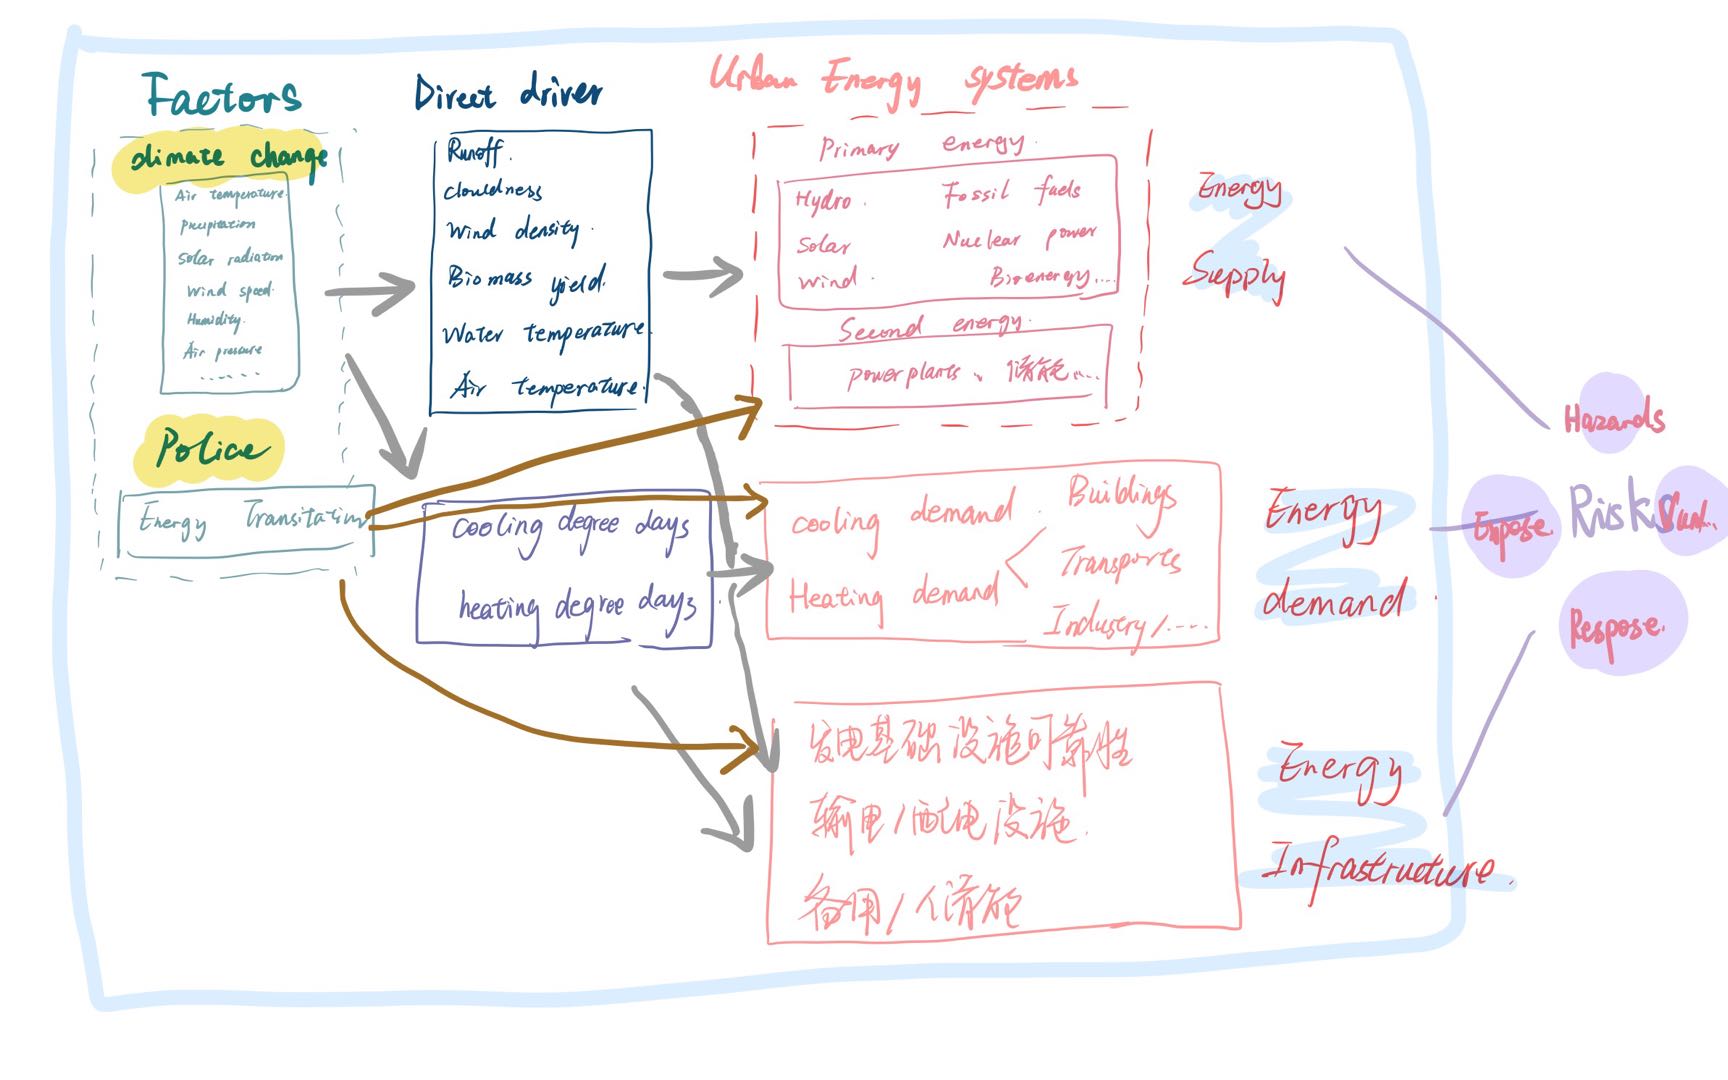 Factors
climate change
Air temperature
Precipitation
Solar radiation
Wind speed
Humidity
Air pressure
......
Police
Energy Transitation
Direct driver
Runoff.
Clouldness
Wind density.
Biomass yield.
Water temperature.
Air temperature.
cooling degree days
heating degree days
Urban Energy systems
Primary energy.
Hydro. Fossil fuels
Solar Nuclear power
Wind. Bioenergy...
Second energy.
powerplants、储能...
cooling demand.
Heating demand
Buildings
Transports
Industry/....
发电基础设施可靠性
输电/配电设施.
备用/储能
Energy
Supply
Energy
demand.
Energy
Infrastructure.
Hazards
Expose.
Risks
Respose.